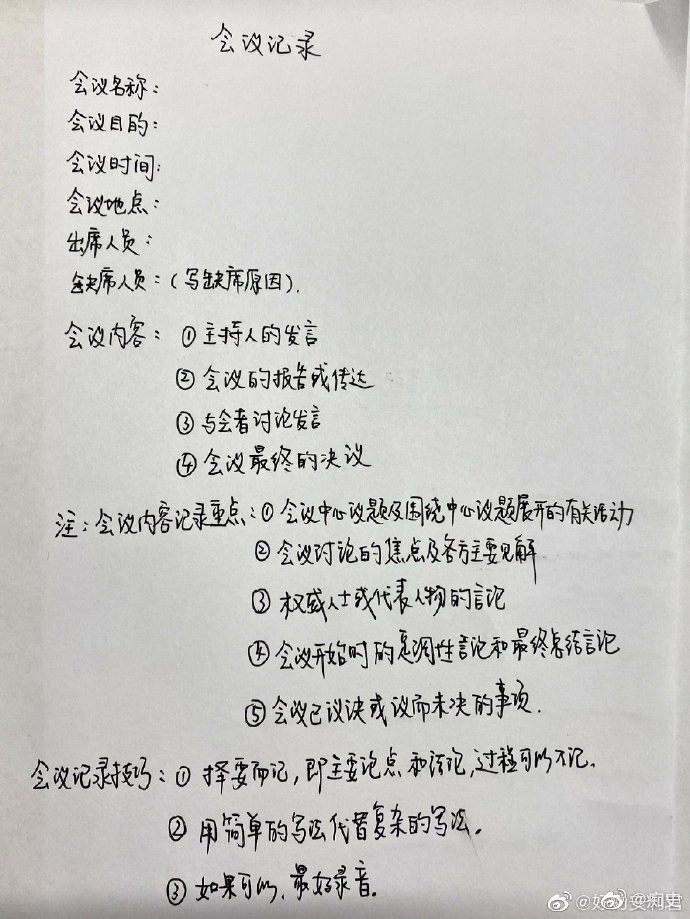 会议记录
会议名称：
会议目的：
会议时间：
会议地点：
出席人员：
缺席人员：（写缺席原因）.
会议内容：①主持人的发言
②会议的报告或传达
③与会者讨论发言
④会议最终的决议
注：会议内容记录重点：①会议中心议题及围绕中心议题展开的有关活动
②会议讨论的焦点及各方主要见解
③权威人士或代表人物的言论
④会议开始时的定调性言论和最终总结言论
⑤会议已议决或议而未决的事项.
会议记录技巧：①择要而记，即主要论点和结论，过程可以不记.
②用简单的写法代替复杂的写法。
③如果可以，最好录音。